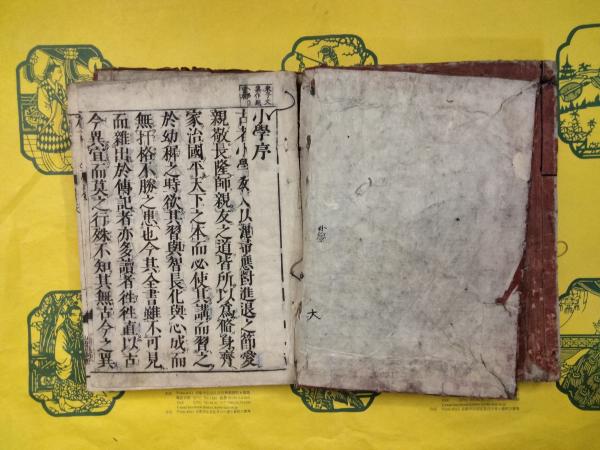 小學序
古者小學教人以灑帚應對進退之節愛
親敬長隆師親友之道皆所以爲脩身齊
家治國平天下之本而必使其講而習之
於幼穉之時欲其習與智長化與心成而
無扞格不勝之患也今其全書雖不可見
而雜出於傳記者亦多讀者徃徃直以古
今異宜而莫之行殊不知其無古今之異
大